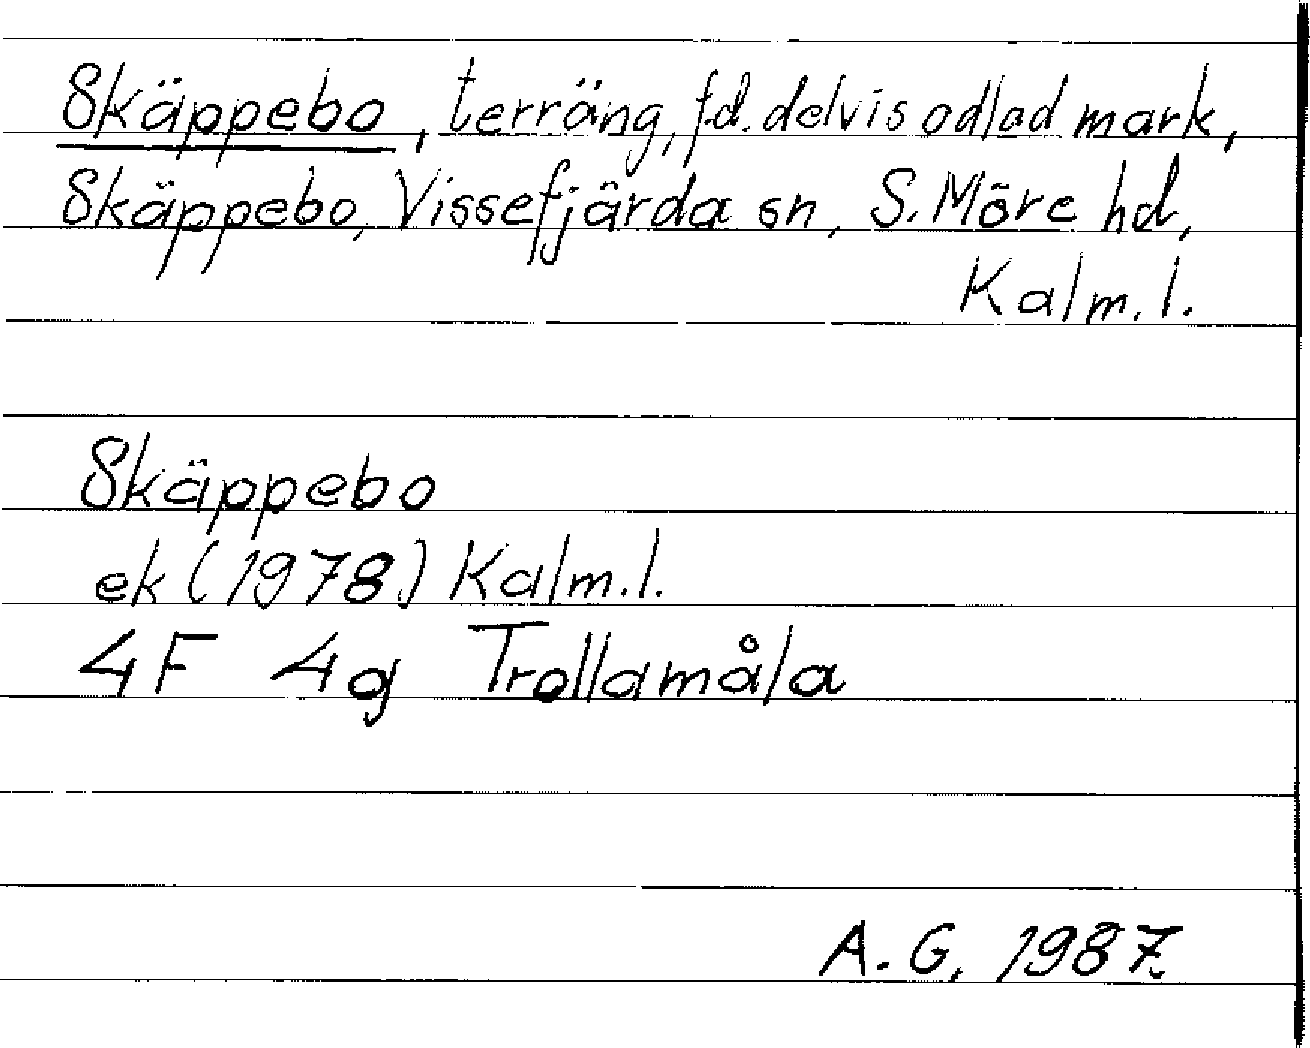 Skäppebo, terräng, f.d. delvis odlad mark,
Skäppebo, Vissefjärda sn, S. Möre hd,
Kalm. l.
Skäppebo
ek (1978) Kalm. l.
4F 4g Trollamåla
A. G. 1987.